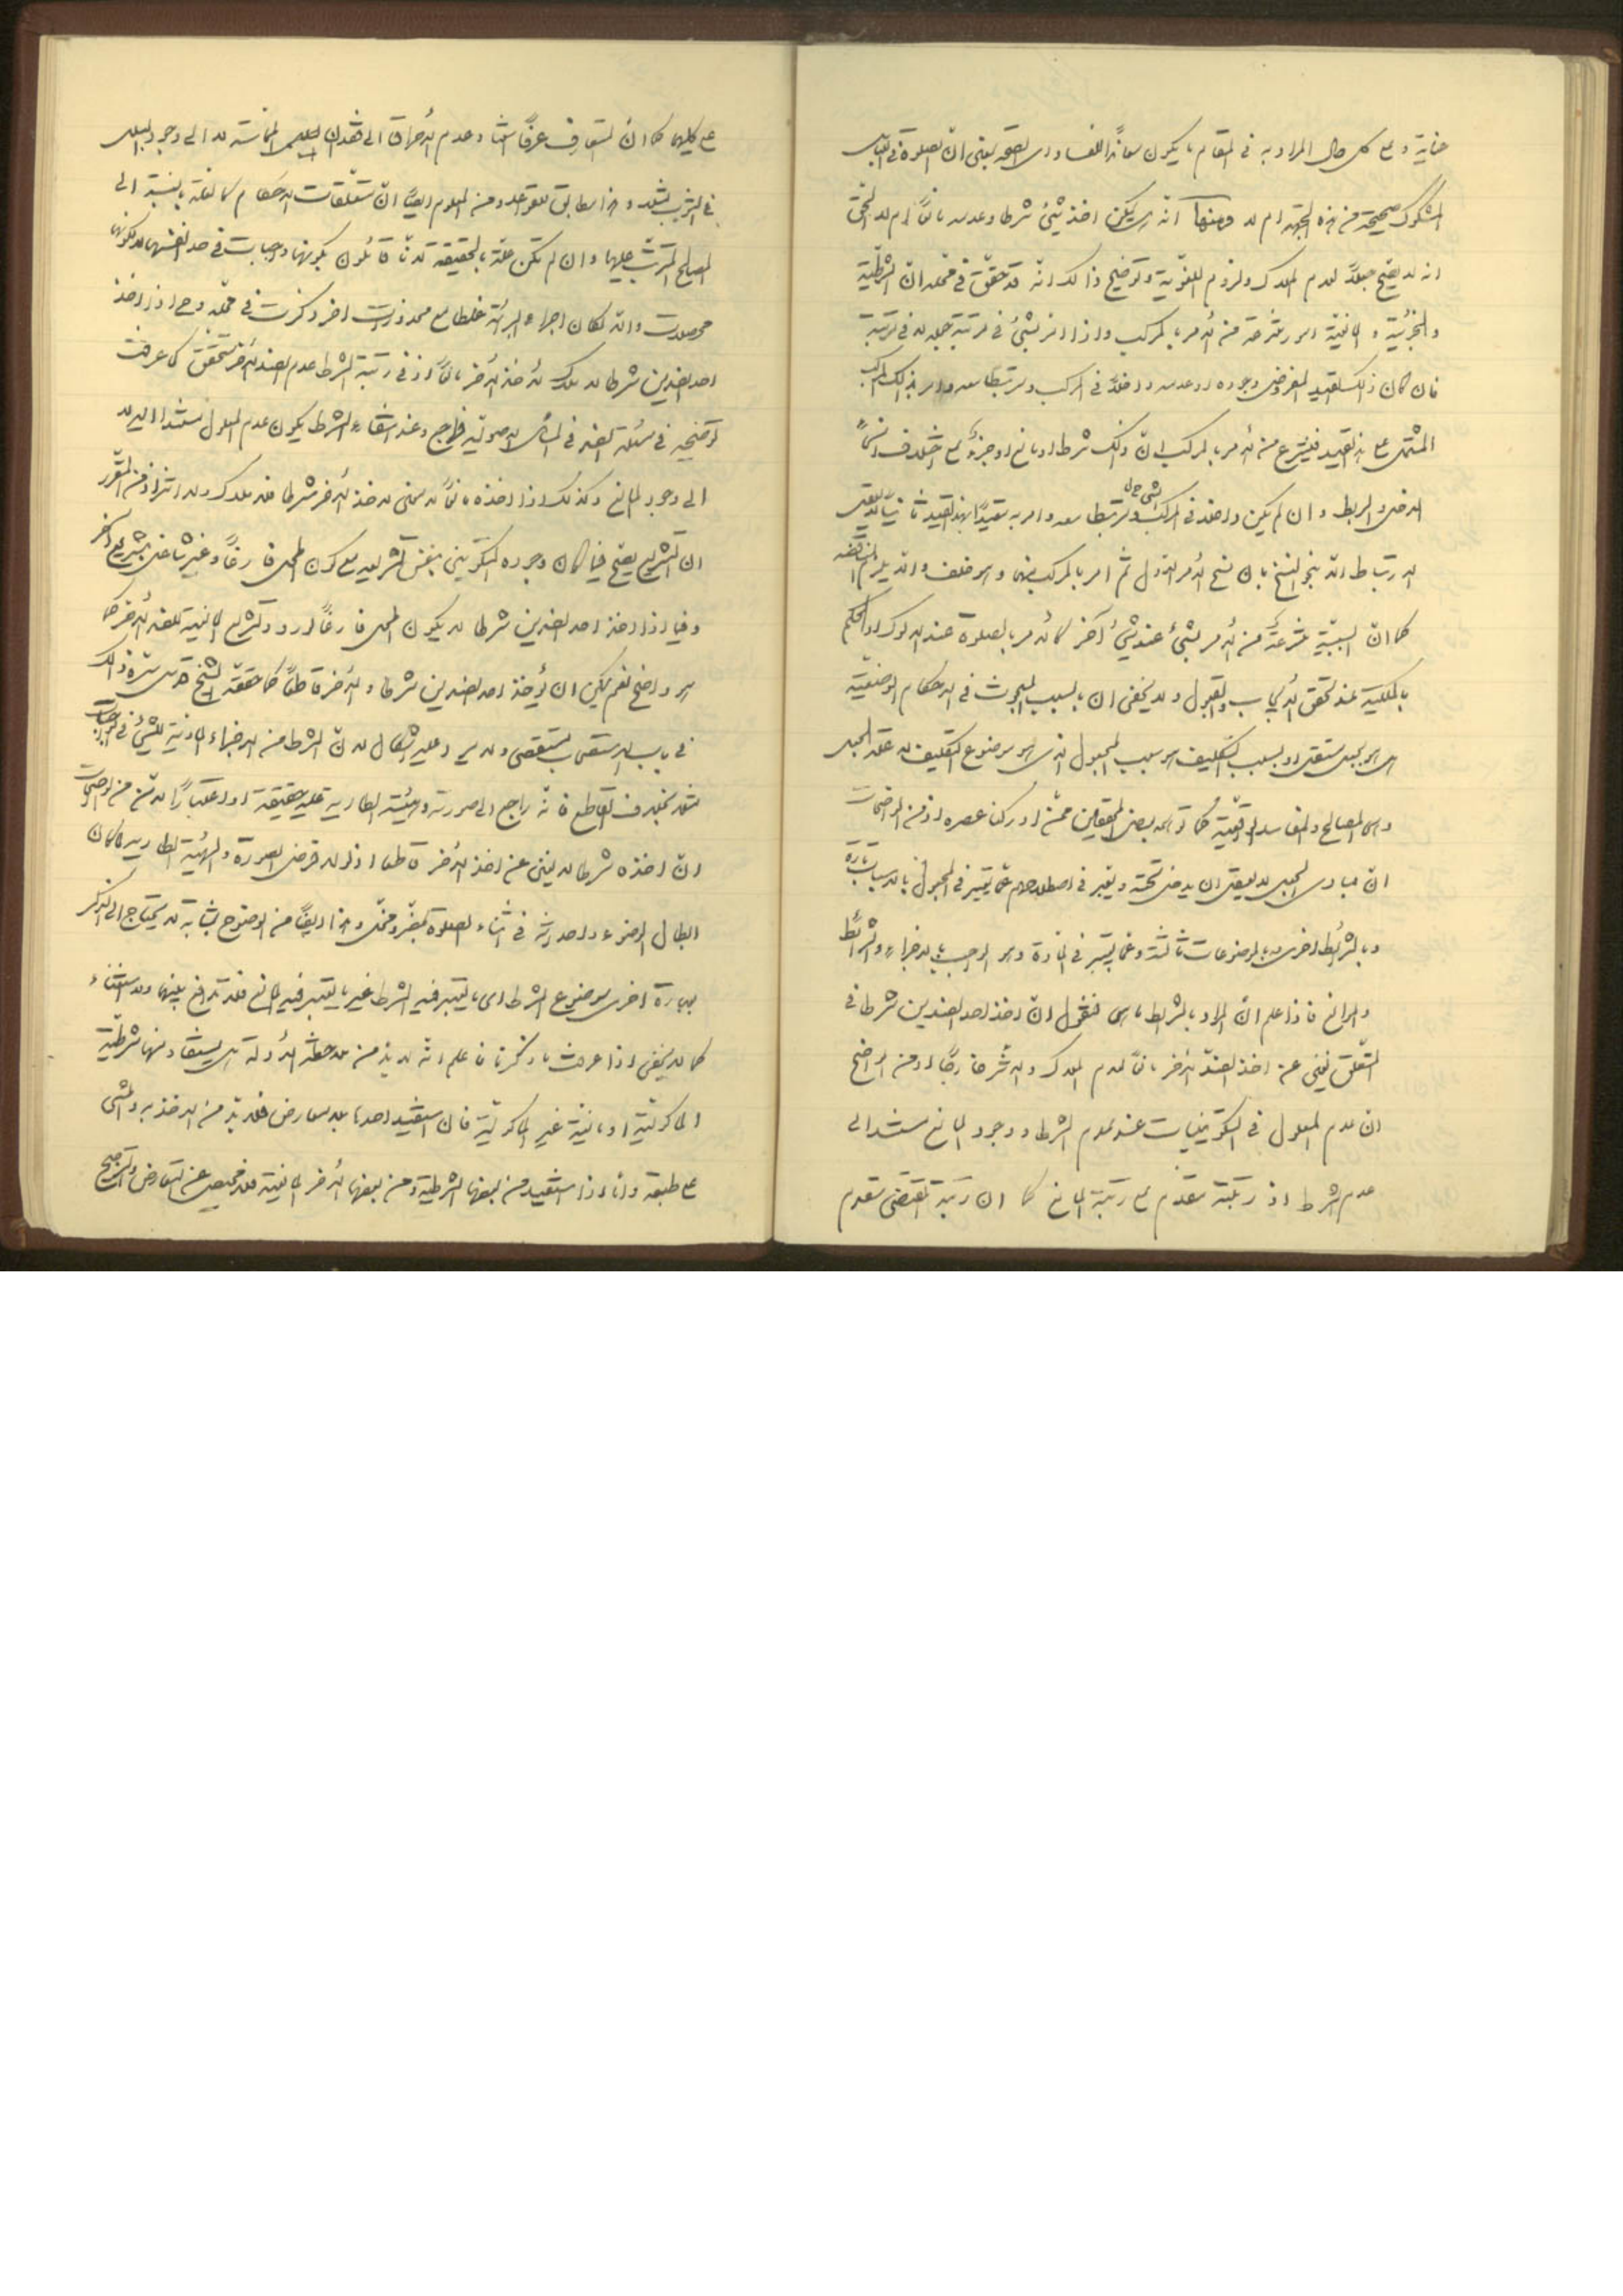 خفائه و على كل حال المراد به فى المقام ما يكون معاندا للفساد اى الصحة يعنى ان الصلوة فى اللباس
المشكوك صحيحة من هذه الجهة ام لا ومنها انه هل يمكن اخذ شئ شرطا وعدمه مانعا ام لا الحق
انه لا يصح جعلا لعدم الملاك ولزوم اللغوية وتوضيح ذالك انه قد حقق فى محله ان الشرطية
والجزئية والمانعية امور منتزعة من الامر بالمركب واذا امر بشئ فى مرتبة جعله لا فى مرتبة
فان كان ذلك التقيد المفروض وجوده او عدمه داخلا فى المركب ومرتبطا معه وامر بذالك المركب
المشتمل على هذا التقيد فينتزع من الامر بالمركب ان ذلك شرط او مانع او جزء على اختلاف انحاء
الدخل والربط وان لم يكن داخلا فى المركب ومرتبطا معه وامر به تقييدا بهذا التقيد ثانيا لا يعقل
الارتباط الا بنحو النسخ بان نسخ الامر الاول ثم امر بالمركب منهما وهو خلف والا يلزم المناقضة
كما ان السببية منتزعة من الامر بشئ عند شئ آخر كالامر بالصلوة عند الدلوك او الحكم
بالملكية عند تحقق الايجاب والقبول ولا يخفى ان السبب المبحوث فى الاحكام الوضعية
اهو بجعل مستقل او بسبب التكليف هو سبب المجعول الذى هو موضوع التكليف لا علة الجعل
وهى المصالح والمفاسد الواقعية كما توهمه بعض المحققين ممن ادركنا عصره اذ من الواضحات
ان مبادى الجعل لا يعقل ان يدخل تحته ويعبر فى اصطلاحهم عما يعتبر فى المجعول بالاسباب تارة
وبالشرائط اخرى وبالموضوعات ثالثة وعما يعتبر فى المادة وهو الواجب بالاجزاء والشرائط
والموانع فاذا علم ان المراد بالشرط ما هى فنقول ان اخذ احد الضدين شرطا فى
المتعلق يغنى عن اخذ الضد الآخر مانعا لعدم الملاك والاثر خارجا اذ من الواضح
ان عدم المعلول فى التكوينيات عند عدم الشرط ووجود المانع مستند الى
عدم الشرط اذ رتبته مقدم على رتبة المانع كما ان رتبة المقتضى مقدم
على كليهما كما ان المتعارف عرفا استناد عدم الاحراق الى فقدان المماسة لا الى وجود البلل
فى الثوب مثلا وهذا مطابق للقواعد ومن المعلوم ايضا ان متعلقات الاحكام كالعلة بالنسبة الى
المصالح المترتب عليها وان لم تكن علة بالحقيقة لانا قائلون بكونها واجبات فى حد انفسها لا لكونها
محصلات والا لكان اجراء البرائة غلطا مع محذورات اخر ذكرت فى محله وح اذا اخذ
احد الضدين شرطا لا ملاك لاخذ الآخر مانعا اذ فى رتبة الشرط عدم الضد الآخر متحقق كما عرفت
توضيحه فى مسئلة الضد فى المسائل الاصولية فراجع وعند انتفاء الشرط يكون عدم المعلول مستندا اليه لا
الى وجود المانع وكذلك اذا اخذه مانعا لا معنى لاخذ الآخر شرطا فلا ملاك ولا اثر اذ من المقرر
ان التشريع يصح فيما كان وجوده التكوينى بنفس التشريع مع كون المحل فارغا وغير شاغل بتشريع آخر
وفيما اذا اخذ احد الضدين شرطا لا يكون المحل فارغا لورود تشريع المانعية للضد الآخر كما
هو واضح نعم يمكن ان يؤخذ احد الضدين شرطا والآخر قاطعا كما حققه الشيخ قدس سره ذالك
فى باب الاستصحاب مستقصى ولا يرد عليه اشكال لان الشرط من الاجزاء المادية للشئ فى الواجبات
مثلا بخلاف القاطع فانه راجع الى صورته والهيئة الطارية عليه حقيقة او اعتبارا لانه من الواضحات
ان اخذه شرطا لا يغنى عن اخذ الآخر قاطعا اذ لو لا فرض الصورة والهيئة الطارية كان
ابطال الوضوء واحداثه فى اثناء الصلوة بمضر ومخل وهذا ايضا من الوضوح بمثابة لا يحتاج الى الذكر
بعبارة اخرى موضوع الشرط اى ما يعتبر فيه الشرط غير ما يعتبر فيه المانع فلا تدافع بينهما ولا استغناء
كما لا يخفى اذا عرفت ما ذكرنا فاعلم انه لا بد من ملاحظة الادلة هل يستفاد منها شرطية
المأكولية او مانعية غير المأكولية فان استفيد احدها بلا معارض فلا بد من الاخذ به والمشى
على طبقه واما اذا استفيد من بعضها الشرطية ومن بعضها الآخر المانعية فلا محيص عن التعارض والترجيح